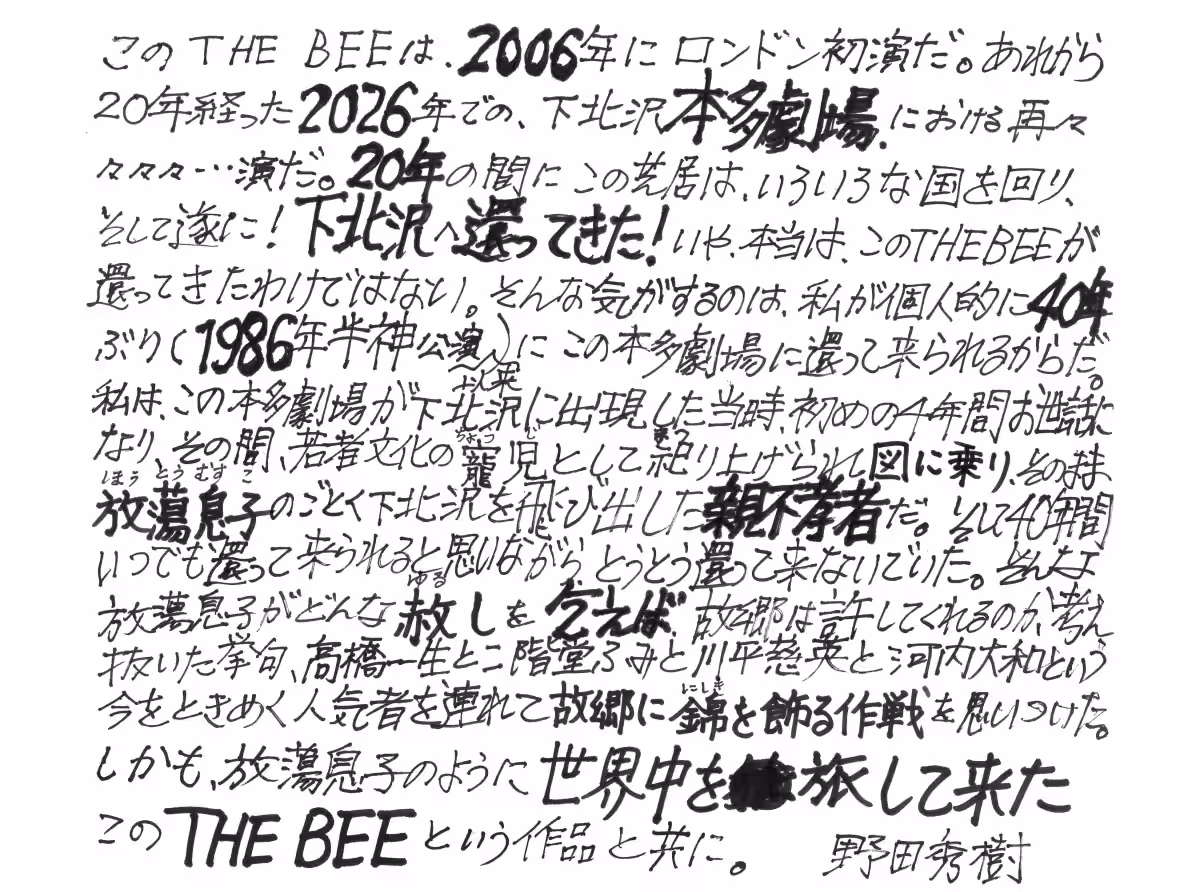 このTHE BEEは、2006年にロンドン初演だ。あれから
20年経った2026年での、下北沢本多劇場における再々
々々々…演だ。20年の間にこの芝居は、いろいろな国を回り、
そして遂に！下北沢へ還ってきた！いや、本当は、このTHE BEEが
還ってきたわけではない。そんな気がするのは、私が個人的に40年
ぶり（1986年半神公演以来）にこの本多劇場に還って来られるからだ。
私は、この本多劇場が下北沢に出現した当時、初めの4年間お世話に
なり、その間、若者文化の寵児として祀り上げられて図に乗り、そのまま
ちょう じ まつ
放蕩息子のごとく下北沢を飛び出した親不孝者だ。そして40年間
ほう とう むす こ
いつでも還って来られると思いながらとうとう還って来ないでいた。そんな
放蕩息子がどんな赦しを乞えば、故郷は許してくれるのか、考え
ゆる
抜いた挙句、高橋一生と二階堂ふみと川平慈英と河内大和という
今をときめく人気者を連れて故郷に錦を飾る作戦を思いつけた。
にしき
しかも、放蕩息子のように世界中を旅して来た
このTHE BEEという作品と共に。 野田秀樹